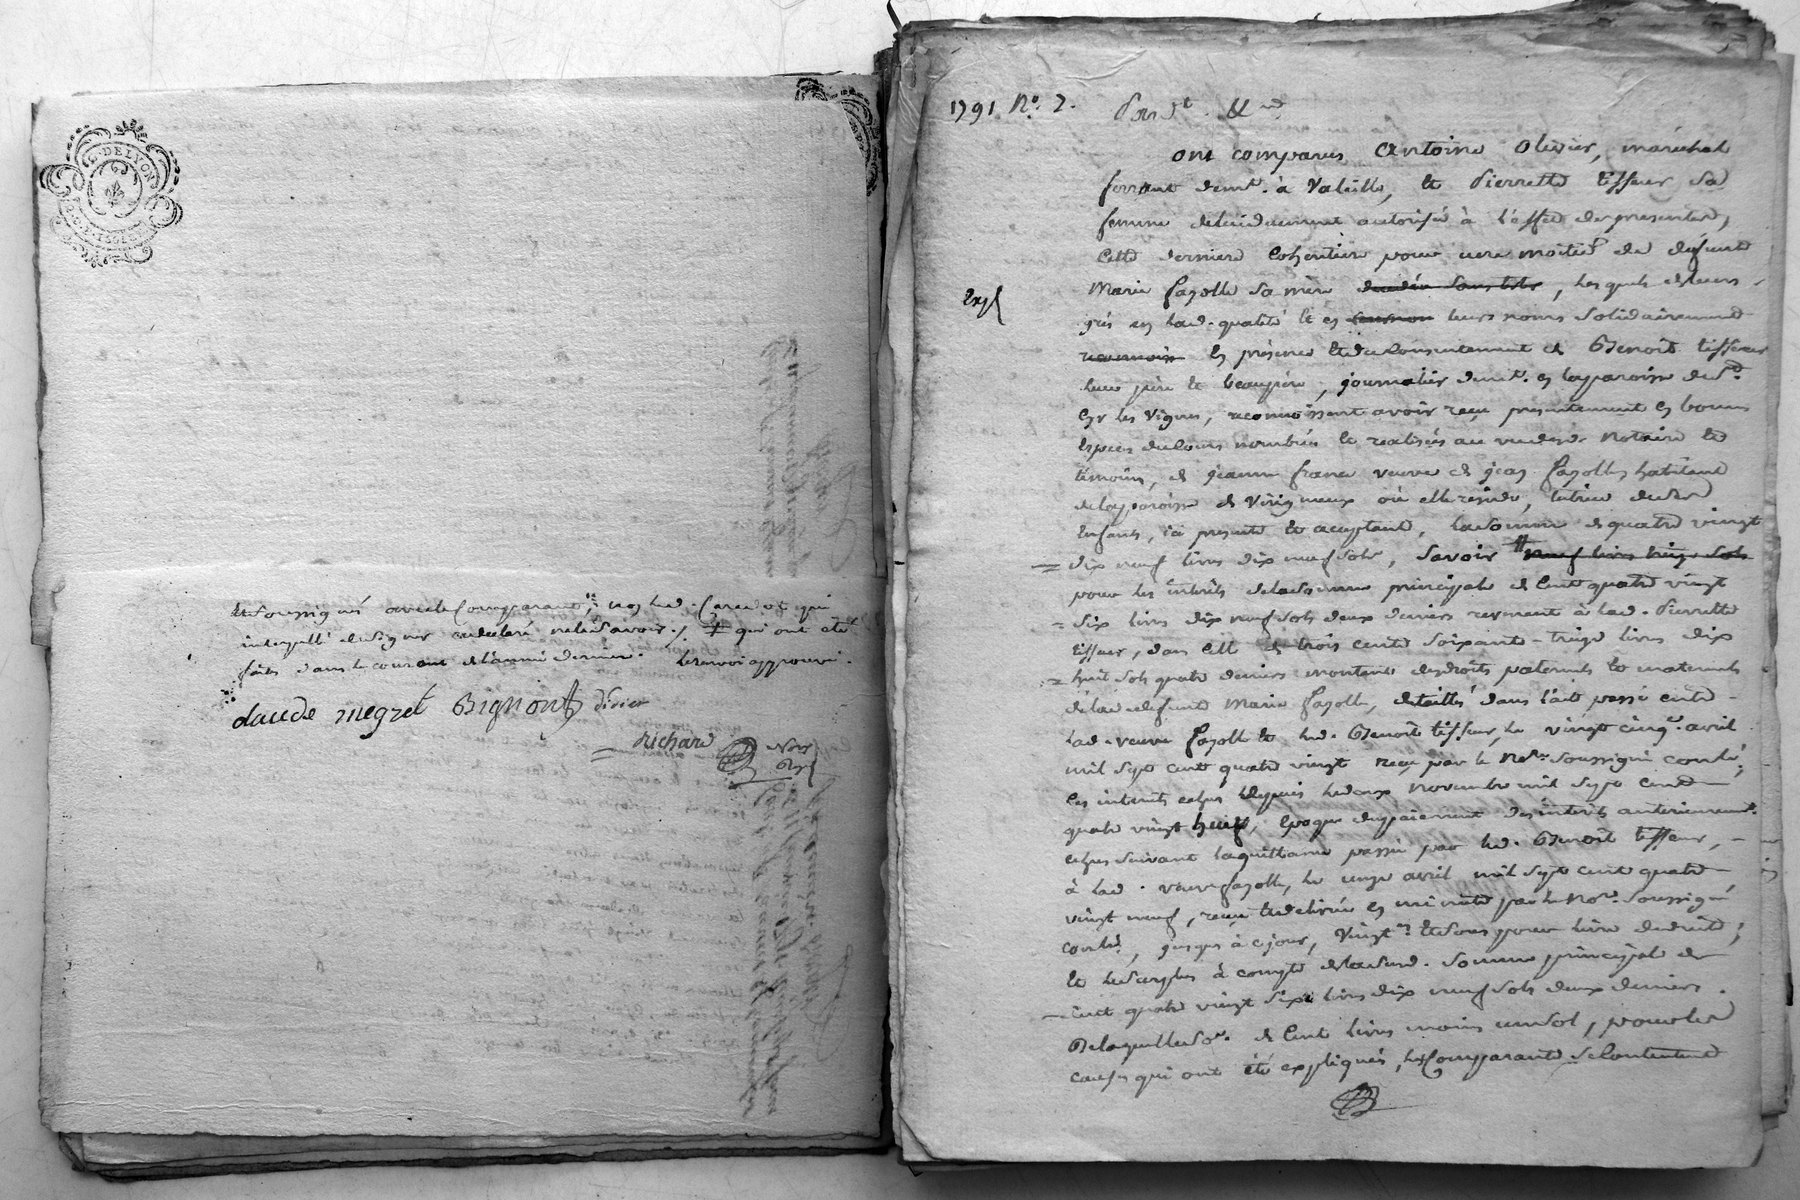 G. DE LYON
et soussigné avec le comparant, nos led. qui
interpellé de signer a déclaré ne le savoir ./. ‡ qui ont été
faits dans le courant de l'année dernière. le renvoi approuvé.
claude megret Bignon didier
richard
Nore
Exp
1791 N.º 2. Pard.t &
ont comparus Antoine Olivier, maréchal
ferrant demt. à Valeille, et Pierrette tisseur sa
femme de lui duement autorisée à l'effet des présentes,
cette derniere cohéritière pour une moitié de défunte
Marie fazolle sa mère décédée sans teste, lesquels de leurs
Exp
grés en lad. qualité et en leurs noms solidairement
reconnoiss en présence et du consentement de Benoît tisseur
leur père et beaupère, journalier demt. en la paroisse de St.
Cyr les Vignes, reconnoissent avoir reçu présentement en bonnes
espèces de cours nombrées et realisées au vu desd. Notaire et
témoins, de jeanne france veuve de jean fazolle habitant
de la paroisse de Virigneux où elle reside, tutrice de ses
Enfants, ici présente et acceptant, la somme de quatre vingt
dix neuf livres dix neuf sols, savoir neuf livres treize sols
pour les intérêts de la somme principale de cent quatre vingt
six livres dix neuf sols deux deniers revenant à lad. Pierrette
tisseur, dans celle de trois cents soixante-treize livres dix
huit sols quatre deniers montant des droits paternels et maternels
de lad. defunte Marie fazolle, détaillés dans l'acte passé entre
lad. veuve fazolle et led. Benoît tisseur, le vingt cinq. avril
mil sept cent quatre vingt reçu par le Nore. soussigné controlé,
les interets echus depuis le deux Novembre mil sept cent
quatre vingt huit, époque du paiement des intérêts anterieurement.
echus suivant la quittance passée par led. Benoît tisseur,
à lad. veuve fazolle, le onze avril mil sept cent quatre
vingt neuf, reçue et delivrée en minute par le Nore. soussigné
controlé, jusques à ce jour, vingt.es et sous pour livre deduits;
et le surplus à compte de la susd. somme principale de
cent quatre vingt six livres dix neuf sols deux deniers.
De laquelle so.e de cent livres moins un sol, pour les
causes qui ont été expliquées, les comparants se contentent